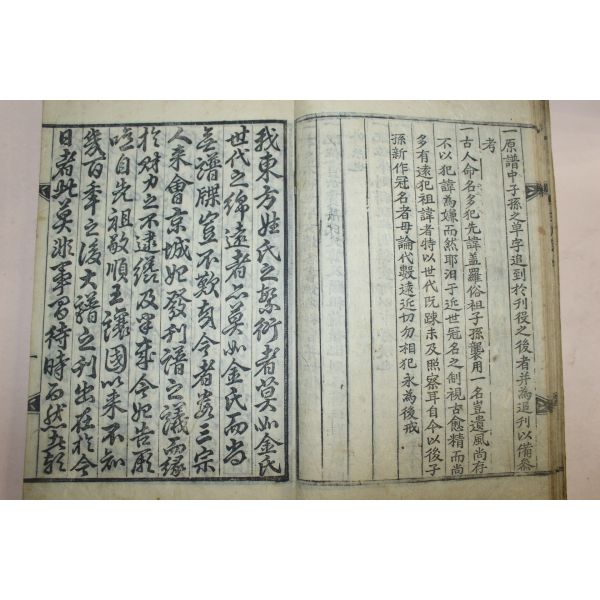 一原譜中子孫之單字追到於刊役之後者并為追刊以備參
考
一古人命名多犯先諱盖羅俗祖子孫襲用一名豈遺風尚存
不以犯諱為嫌而然耶洎于近世冠名之制視古愈精而尚
多有遠犯祖諱者特以世代既踈未及照察耳自今以後子
孫新作冠名者毋論代數遠近切勿相犯永為後戒
我東方姓氏之繁衍者莫如金氏
世代之綿遠者亦莫如金氏而尚
無譜牒豈不歎哉今者若三宗
人來會京城始發刊譜之議而緣
於財力之不逮繕及半幸今始告厥
噫自先祖敬順王讓國以來不知
幾百年之後大譜之刊出在於今
日者此莫非事有待時而然